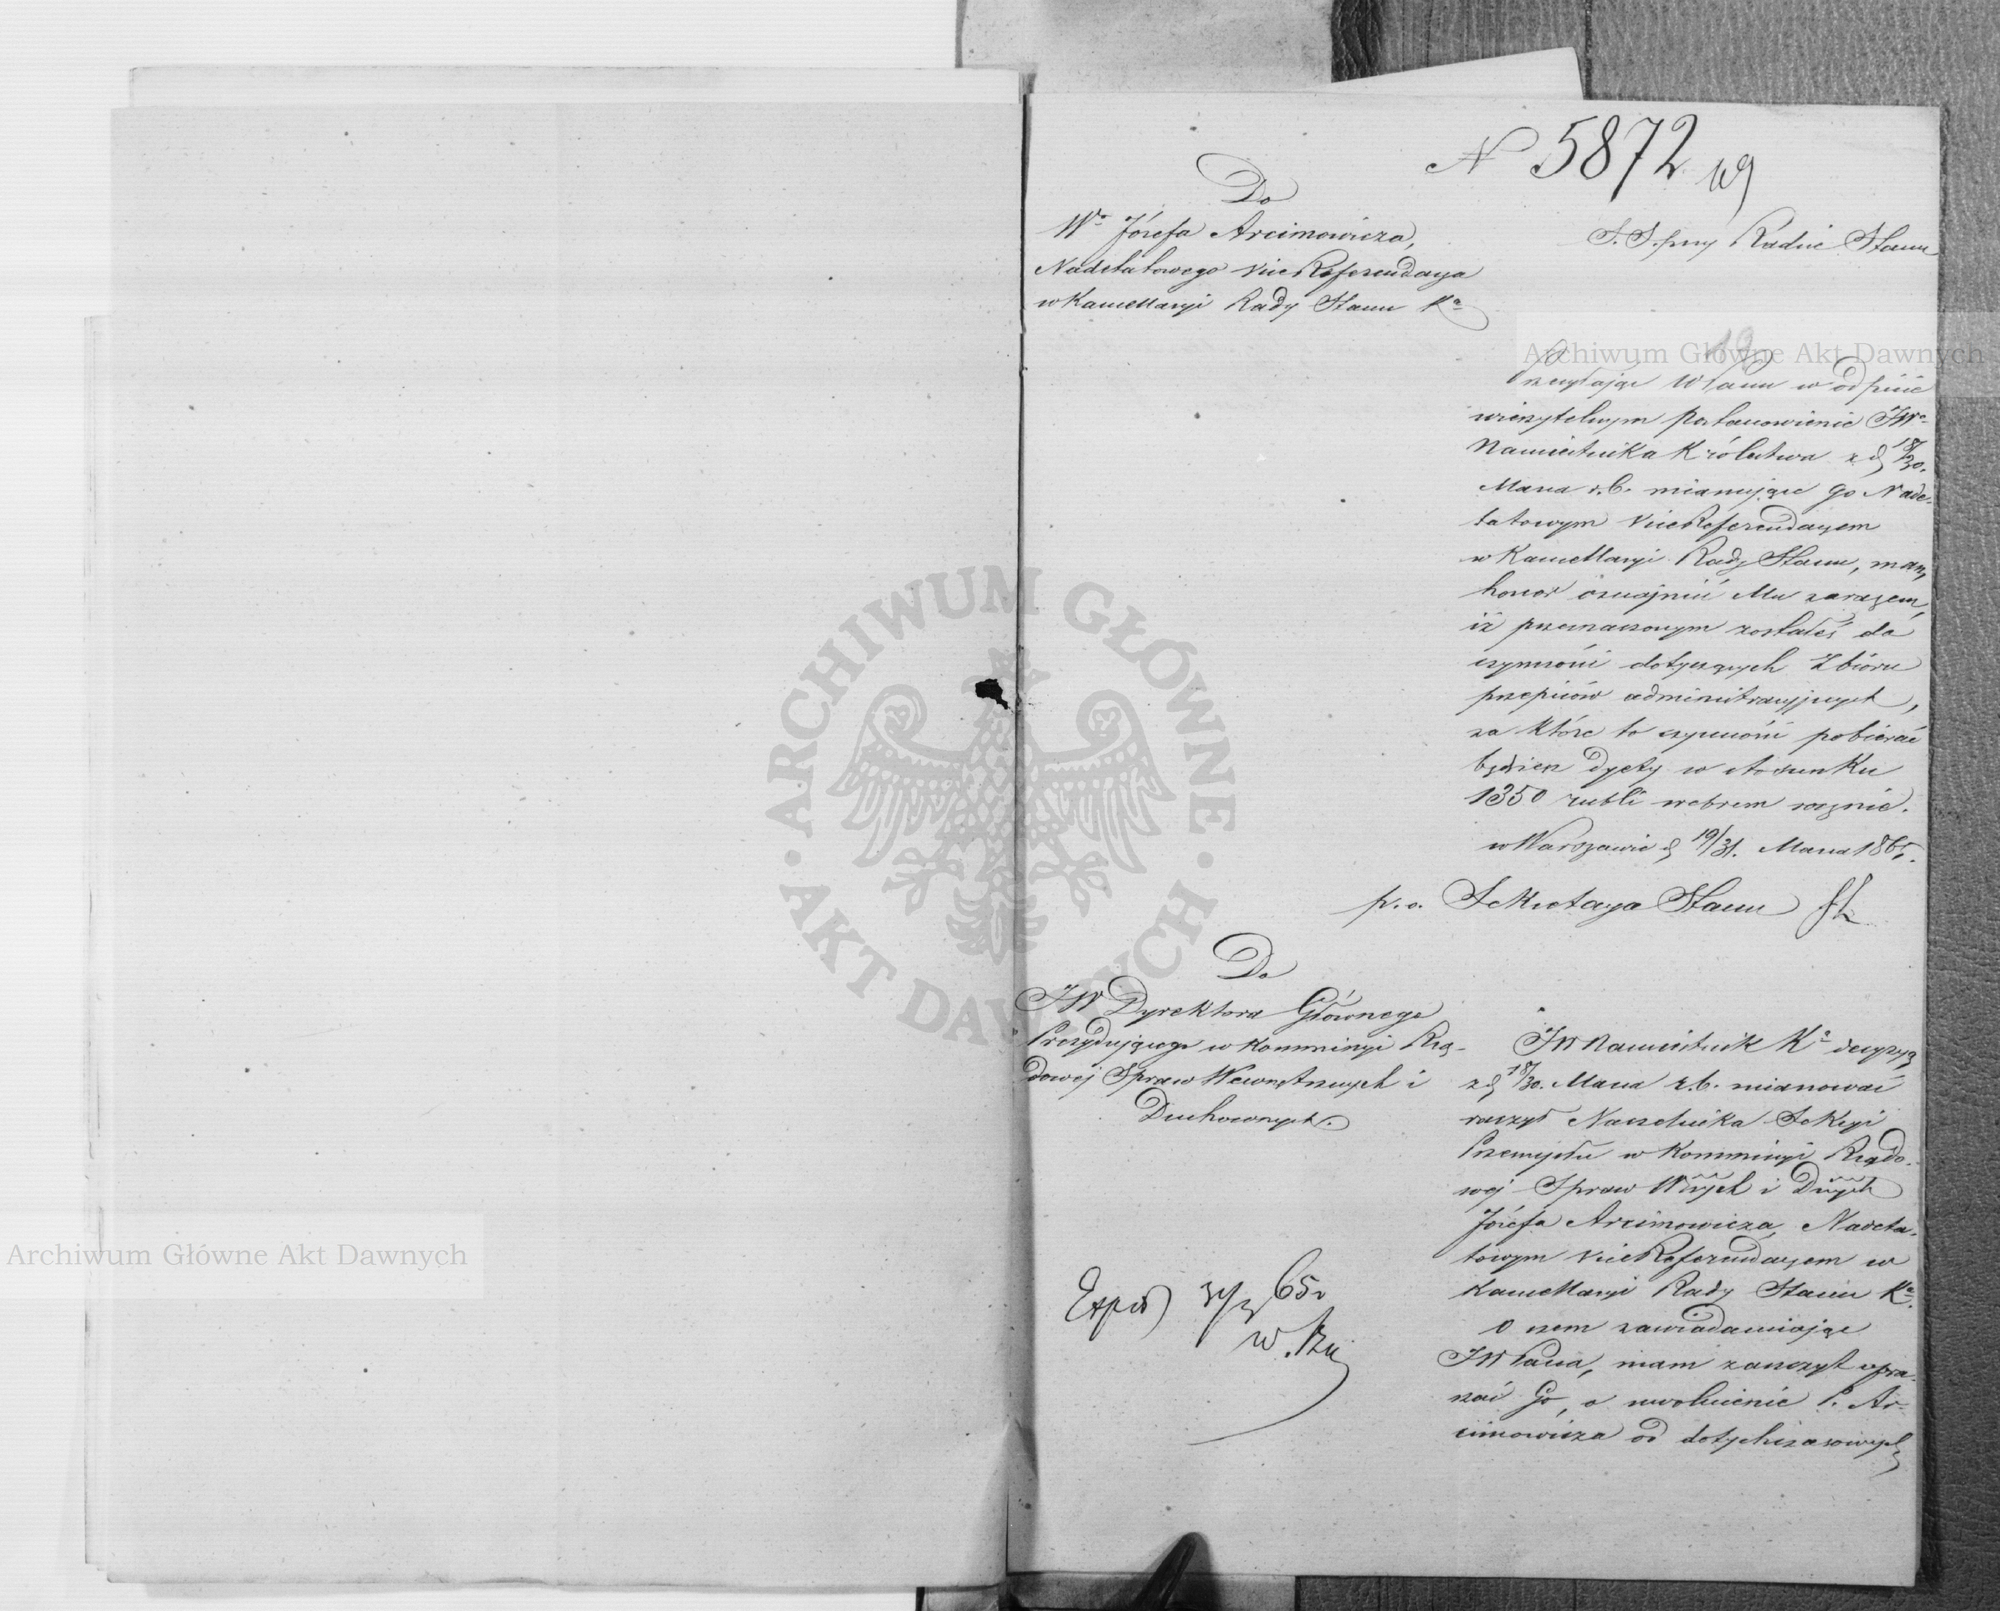 N 5872
Do
Wo Józefa Arcimowicza,
Nadetatowego ViceReferendarza
w Kancellaryi Rady Stanu Ka
S. S. przy Radzie Stanu
19
Przesyłając WPanu w odpisie
wierzytelnym postanowienie JWo
Namiestnika Królestwa z d 18/30.
Marca r.b. mianujące go Nade-
tatowym ViceReferendarzem
w Kancellaryi Rady Stanu, mam
honor oznajmić Mu zarazem,
iż przeznaczonym zostałeś do
czynności dotyczących Zbioru
przepisów administracyjnych,
za które to czynności pobierać
będziesz dyety w stosunku
1350 rubli srebrem rocznie.
w Warszawie d 19/31. Marca 1865.
p. o. Sekretarza Stanu
Do
JW Dyrektora Głównego
Prezydującego w Kommissyi Rzą-
dowej Spraw Wewnętrznych i
Duchownych.
JW Namiestnik Ka decyzyą
z d 18/30. Marca r.b. mianować
raczył Naczelnika Sekcyi
Przemysłu w Kommissyi Rządo-
wej Spraw Wnych i Dnych
Józefa Arcimowicza, Nadeta-
towym ViceReferendarzem w
Kancellaryi Rady Stanu Ka.
O czem zawiadamiając
JWPana, mam zaszczyt upra-
szać Go, o uwolnienie P. Ar-
cimowicza od dotychczasowych
Exped 31/3 65
ARCHIWUM GŁÓWNE AKT DAWNYCH
Archiwum Główne Akt Dawnych
Archiwum Główne Akt Dawnych